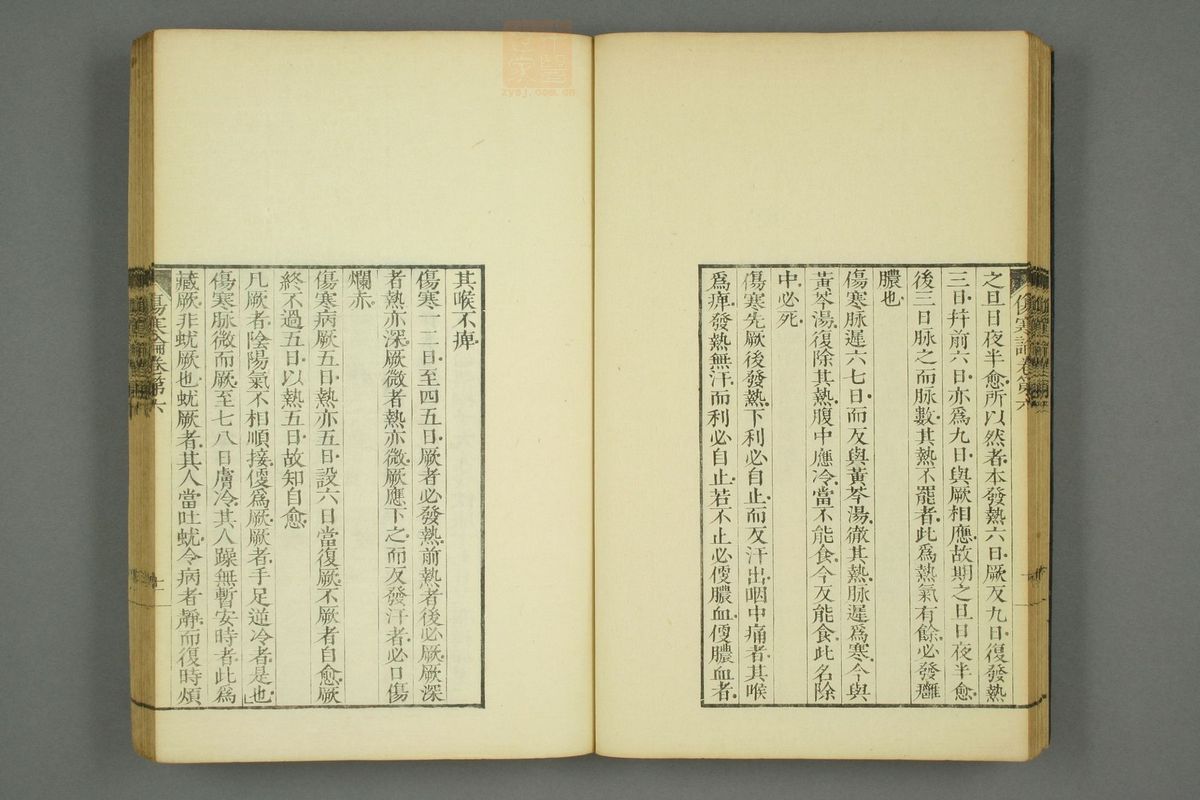 之旦日夜半愈所以然者本發熱六日厥反九日復發熱
三日并前六日亦爲九日與厥相應故期之旦日夜半愈
後三日脉之而脉數其熱不罷者此爲熱氣有餘必發癰
膿也
傷寒脉遲六七日而反與黃芩湯徹其熱脉遲爲寒今與
黃芩湯復除其熱腹中應冷當不能食今反能食此名除
中必死
傷寒先厥後發熱下利必自止而反汗出咽中痛者其喉
爲痺發熱無汗而利必自止若不止必便膿血便膿血者
其喉不痺
傷寒一二日至四五日厥者必發熱前熱者後必厥厥深
者熱亦深厥微者熱亦微厥應下之而反發汗者必口傷
爛赤
傷寒病厥五日熱亦五日設六日當復厥不厥者自愈厥
終不過五日以熱五日故知自愈
凡厥者陰陽氣不相順接便爲厥厥者手足逆冷者是也
傷寒脉微而厥至七八日膚冷其人躁無暫安時者此爲
藏厥非蚘厥也蚘厥者其人當吐蚘令病者靜而復時煩
傷寒論卷第六
zysj.com.cn